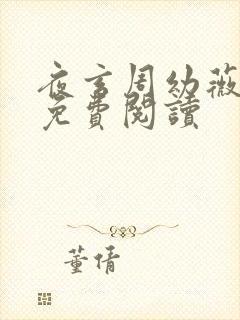 夜言周幼薇
免費閱讀
董倩